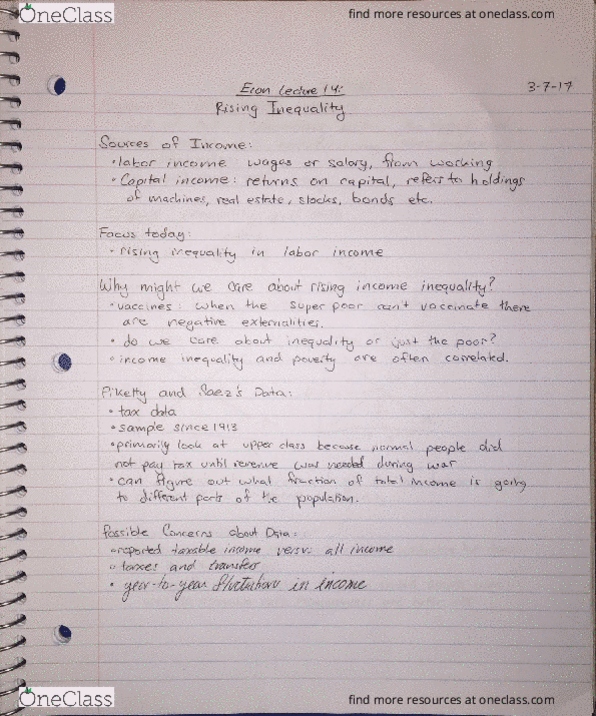 OneClass
find more resources at oneclass.com
Econ Lecture 14:
3-7-17
Rising Inequality
Sources of Income:
• labor income wages or salary, from working
• Capital income: returns on capital, refers to holdings
of machines, real estate, stocks, bonds etc.
Focus today:
• rising inequality in labor income
Why might we care about rising income inequality?
• vaccines: when the super poor can't vaccinate there
are negative externalities.
• do we care about inequality or just the poor?
• income inequality and poverty are often correlated.
Piketty and Saez's Data:
• tax data
• sample since 1913
• primarily look at upper class because normal people did
not pay tax until revenue was needed during war
• can figure out what fraction of total income is going
to different parts of the population.
Possible Concerns about Data:
• reported taxable income versus all income
• taxes and transfers
• year-to-year fluctuations in income
OneClass
find more resources at oneclass.com